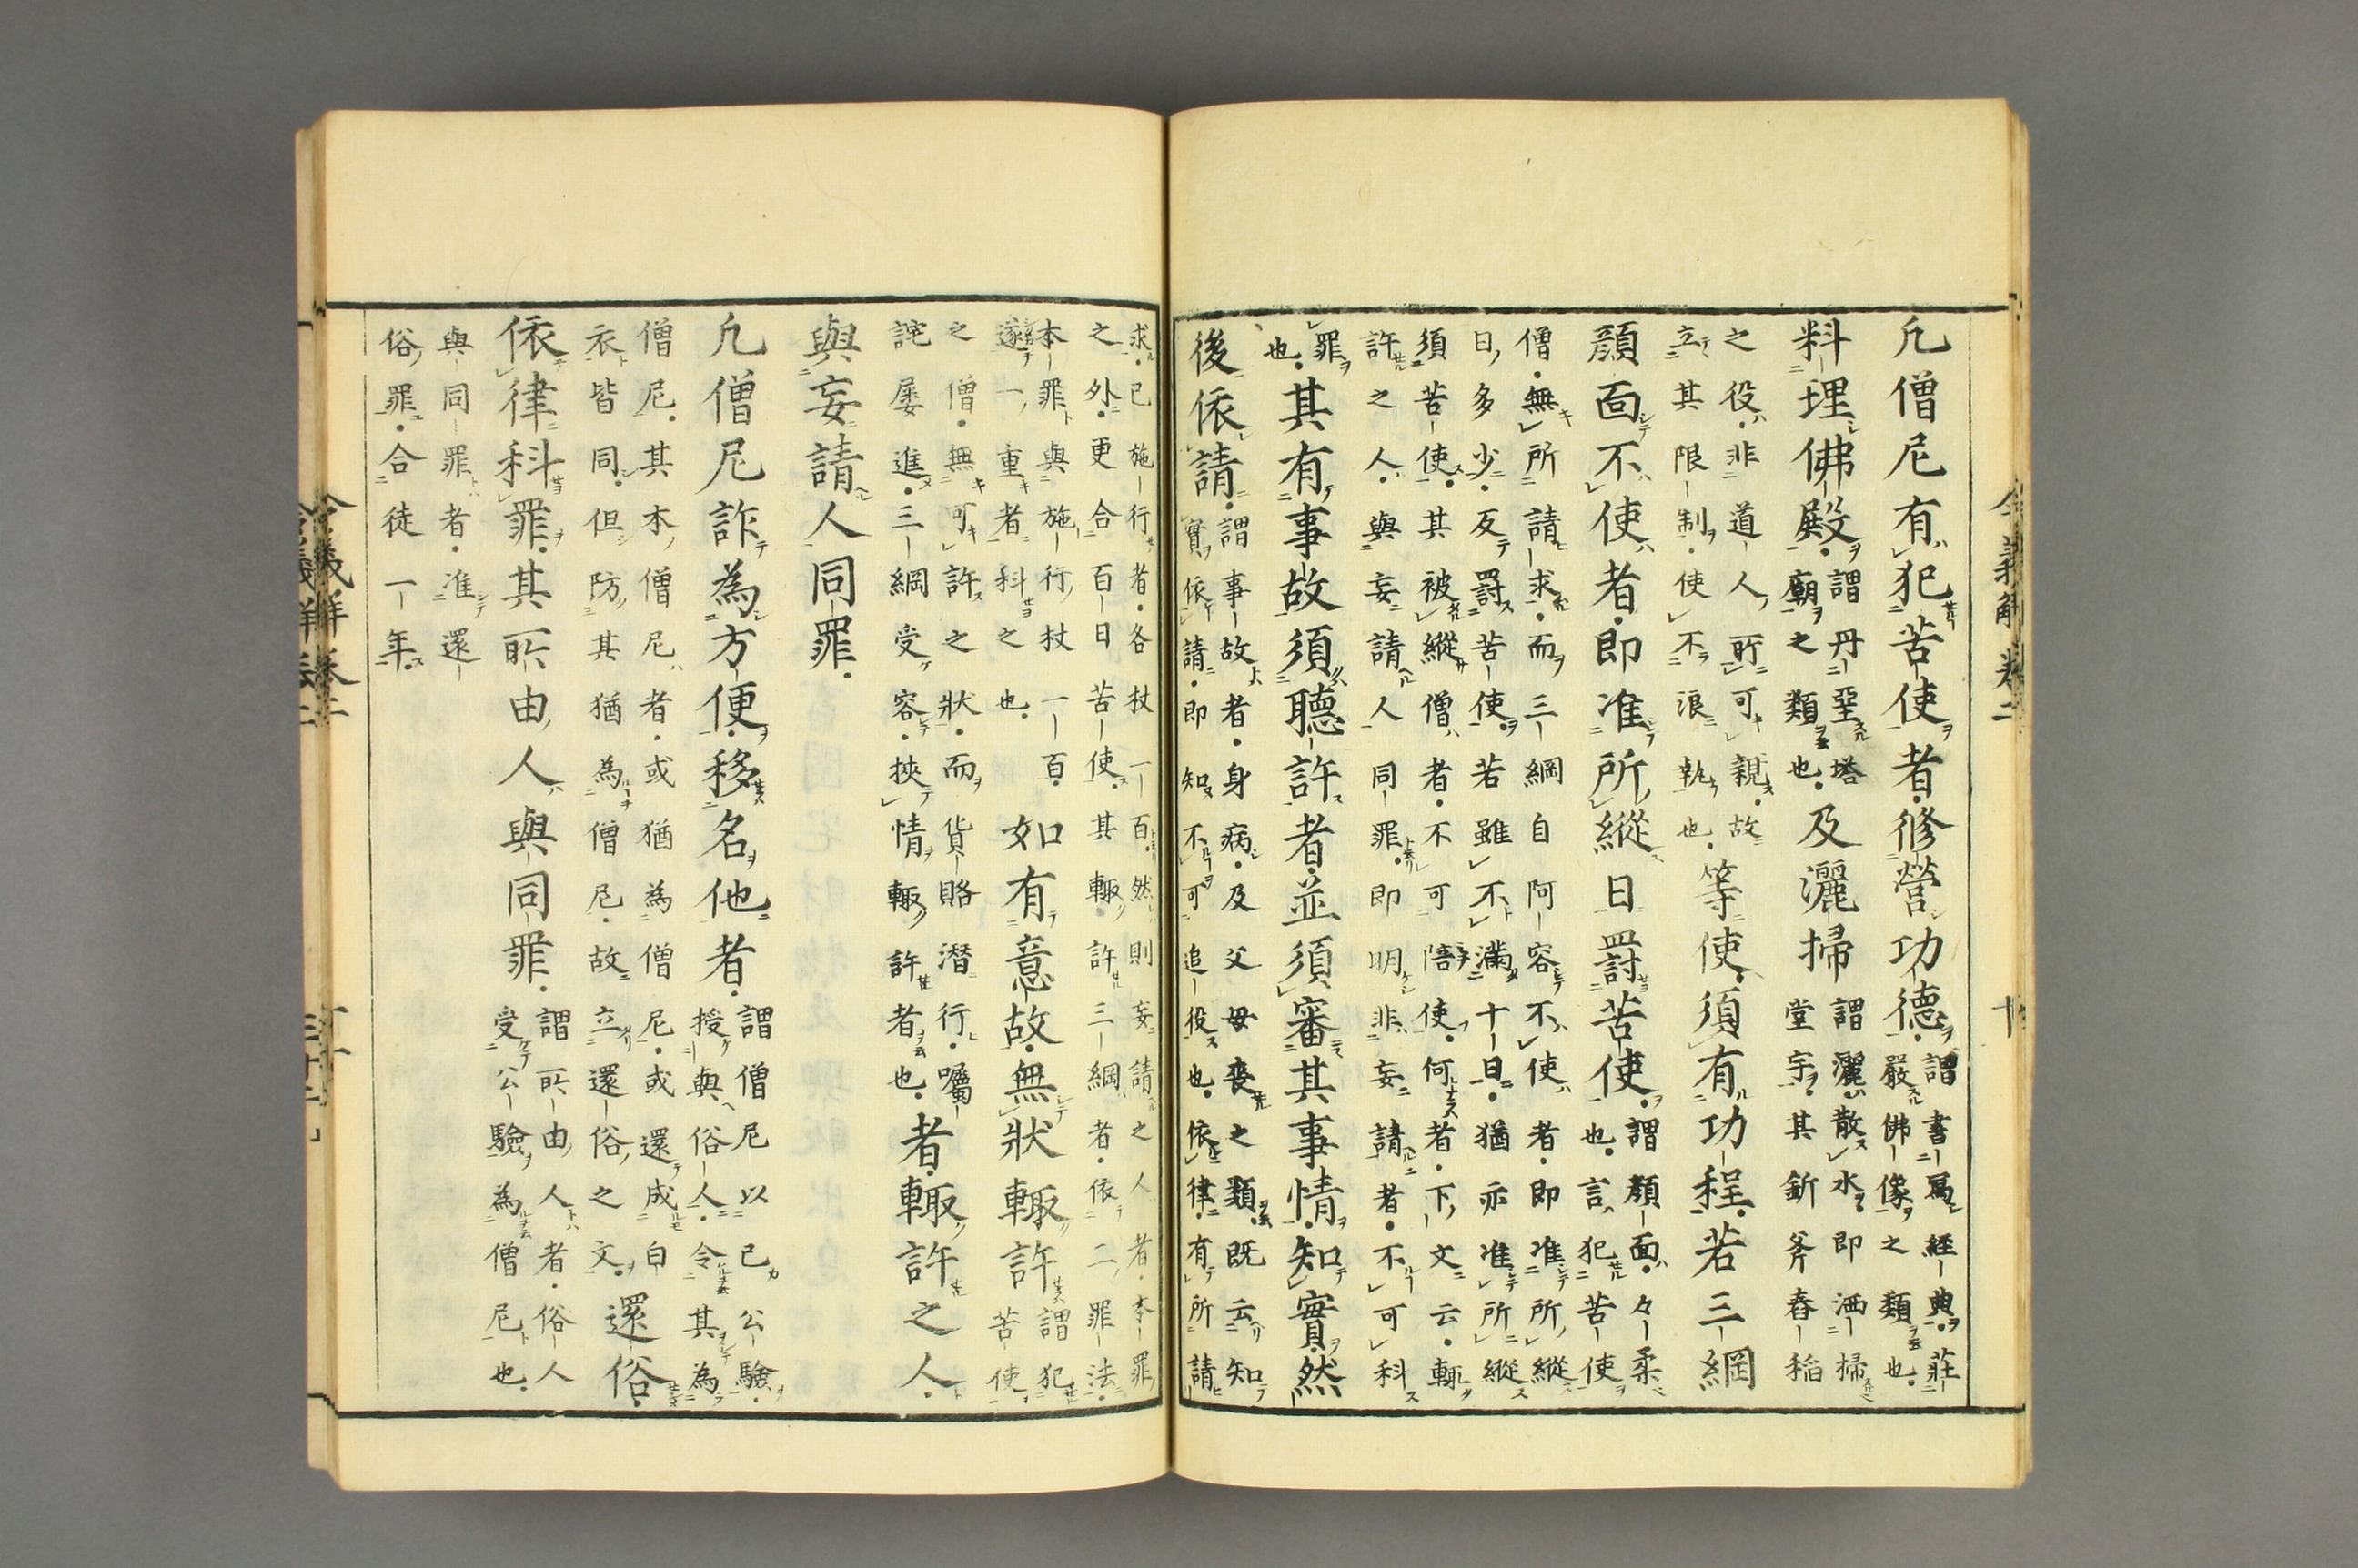 凡僧尼有犯苦使者修營功德
謂書寫經典莊
嚴佛像之類也
料理佛殿
謂丹堊塔
廟之類也
及灑掃
謂灑散水即洒掃
堂宇其釿斧舂稲
之役非道人所可親故
立其限制使不浪執也
等使須有功程若三綱
顏面不使者即准所縱日罸苦使
謂顏面々柔
也言犯苦使
僧無所請求而三綱自阿容不使者即准所縱
日多少反罸苦使若雖不滿十日猶亦准所縱
須苦使其被縱僧者不可陪使何者下文云輙
許之人與妄請人同罪即明非妄請者不可科
罪
也
其有事故須聽許者並須審其事情知實然
後依請
謂事故者身病及父母喪之類既云知
實依請即知不可追役也依律有所請
求已施行者各杖一百然則妄請之人者本罪
之外更合百日苦使其輙許三綱者依二罪法
本罪與施行杖一百
遂一重者科之也
如有意故無狀輙許
謂犯
苦使
之僧無可許之狀而貨賂潜行囑
詫屡進三綱受容挾情輙許者也
者輙許之人
與妄請人同罪
凡僧尼詐為方便移名他者
謂僧尼以己公驗
授與俗人令其為
僧尼其本僧尼者或猶為僧尼或還成白
衣皆同但防其猶為僧尼故立還俗之文
還俗
依律科罪其所由人與同罪
謂所由人者俗人
受公驗為僧尼也
與同罪者准還
俗罪合徒一年
令義解卷二
十